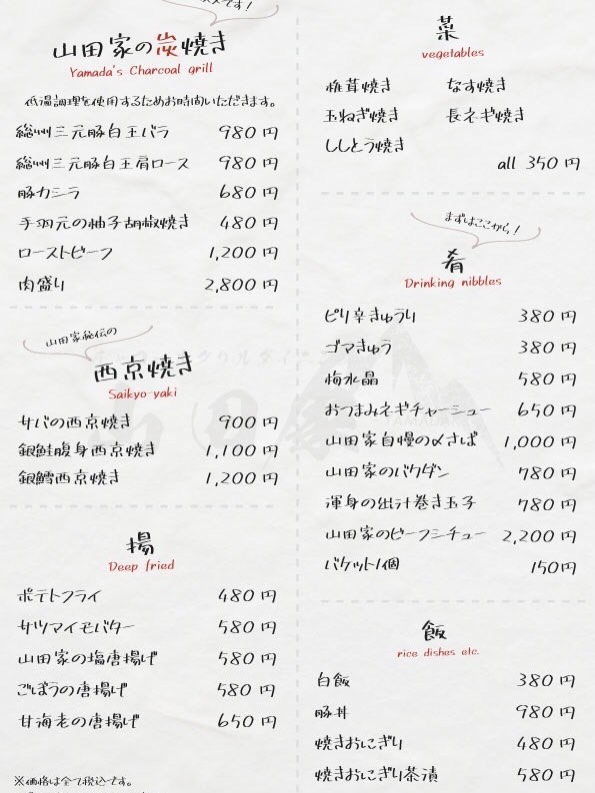 山田家の炭焼き
Yamada's Charcoal grill
低温調理を使用するためお時間いただきます。
総州三元豚白王バラ 980円
総州三元豚白王肩ロース 980円
豚カシラ 680円
手羽元の柚子胡椒焼き 480円
ローストビーフ 1,200円
肉盛り 2,800円
山田家秘伝の
西京焼き
Saikyo-yaki
サバの西京焼き 900円
銀鮭腹身西京焼き 1,100円
銀鱈西京焼き 1,200円
揚
Deep fried
ポテトフライ 480円
サツマイモバター 580円
山田家の塩唐揚げ 580円
ごぼうの唐揚げ 580円
甘海老の唐揚げ 650円
※価格は全て税込です。
菜
vegetables
椎茸焼き なす焼き
玉ねぎ焼き 長ネギ焼き
ししとう焼き
all 350円
まずはここから!
肴
Drinking nibbles
ピリ辛きゅうり 380円
ゴマきゅう 380円
梅水晶 580円
おつまみネギチャーシュー 650円
山田家自慢の〆さば 1,000円
山田家のバクダン 780円
渾身の出汁巻き玉子 780円
山田家のビーフシチュー 2,200円
バケット1個 150円
飯
rice dishes etc.
白飯 380円
豚丼 980円
焼きおにぎり 480円
焼きおにぎり茶漬 580円
山田家